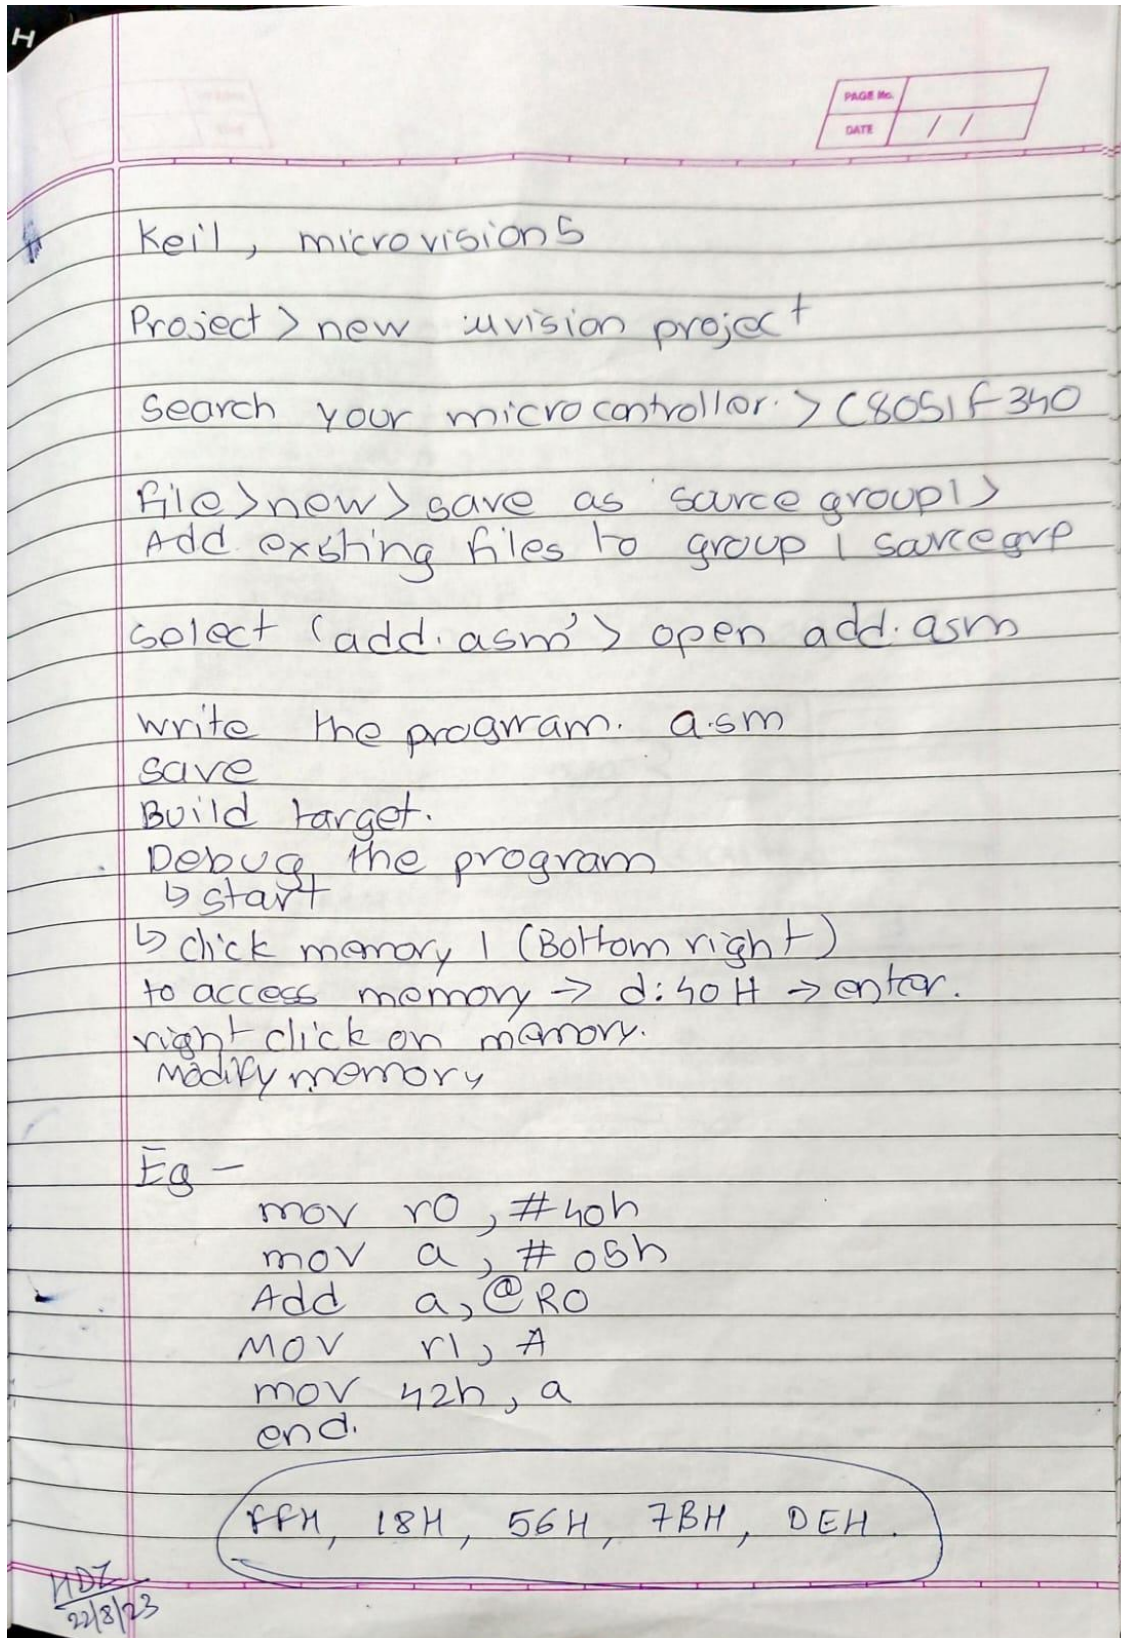 H
PAGE No.
DATE / /
Keil, microvision5
Project > new uvision project
Search your microcontroller. > C8051F340
File > new > save as 'sarce group1 >
Add existing files to group 1 sarcegrp
Select 'add.asm' > open add.asm
Write the program. a.sm
save
Build target.
Debug the program
↳ start
↳ click memory 1 (Bottom right)
to access memory → d:40H → enter.
right click on memory.
Modify memory
Eg –
mov r0, #40h
mov a, #05h
Add a, @R0
MOV r1, A
mov 42h, a
end.
FFH, 18H, 56H, 7BH, DEH.
22/8/23